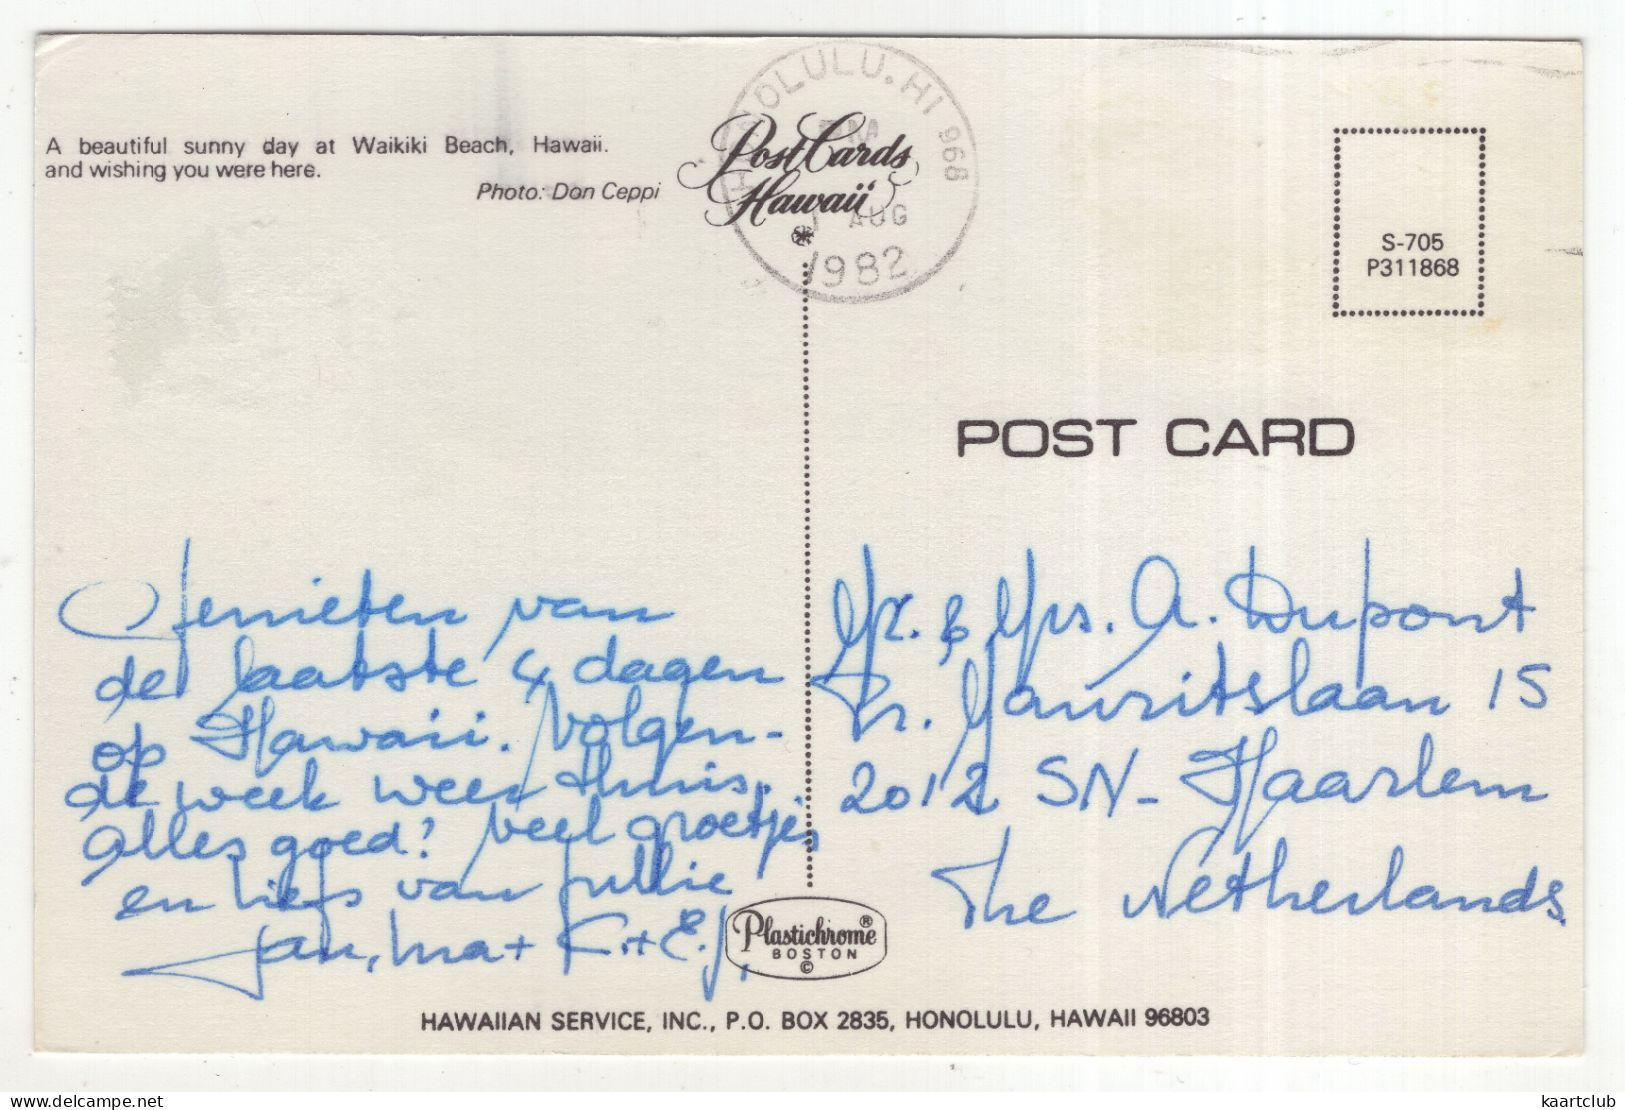 A beautiful sunny day at Waikiki Beach, Hawaii.
and wishing you were here.
Photo: Don Ceppi
HONOLULU, HI 968
PM
AUG
1982
PostCards
Hawaii
S-705
P311868
POST CARD
Genieten van
de laatste 4 dagen
op Hawaii. Volgen-
de week weer thuis.
Alles goed? Veel groetjes
en liefs van jullie
Jan, Ina + K. + E.J.
Mr. & Mrs. A. Dupont
Pr. Mauritslaan 15
2012 SN - Haarlem
The Netherlands.
Plastichrome®
BOSTON
©
HAWAIIAN SERVICE, INC., P.O. BOX 2835, HONOLULU, HAWAII 96803
kaartclub
delcampe.net